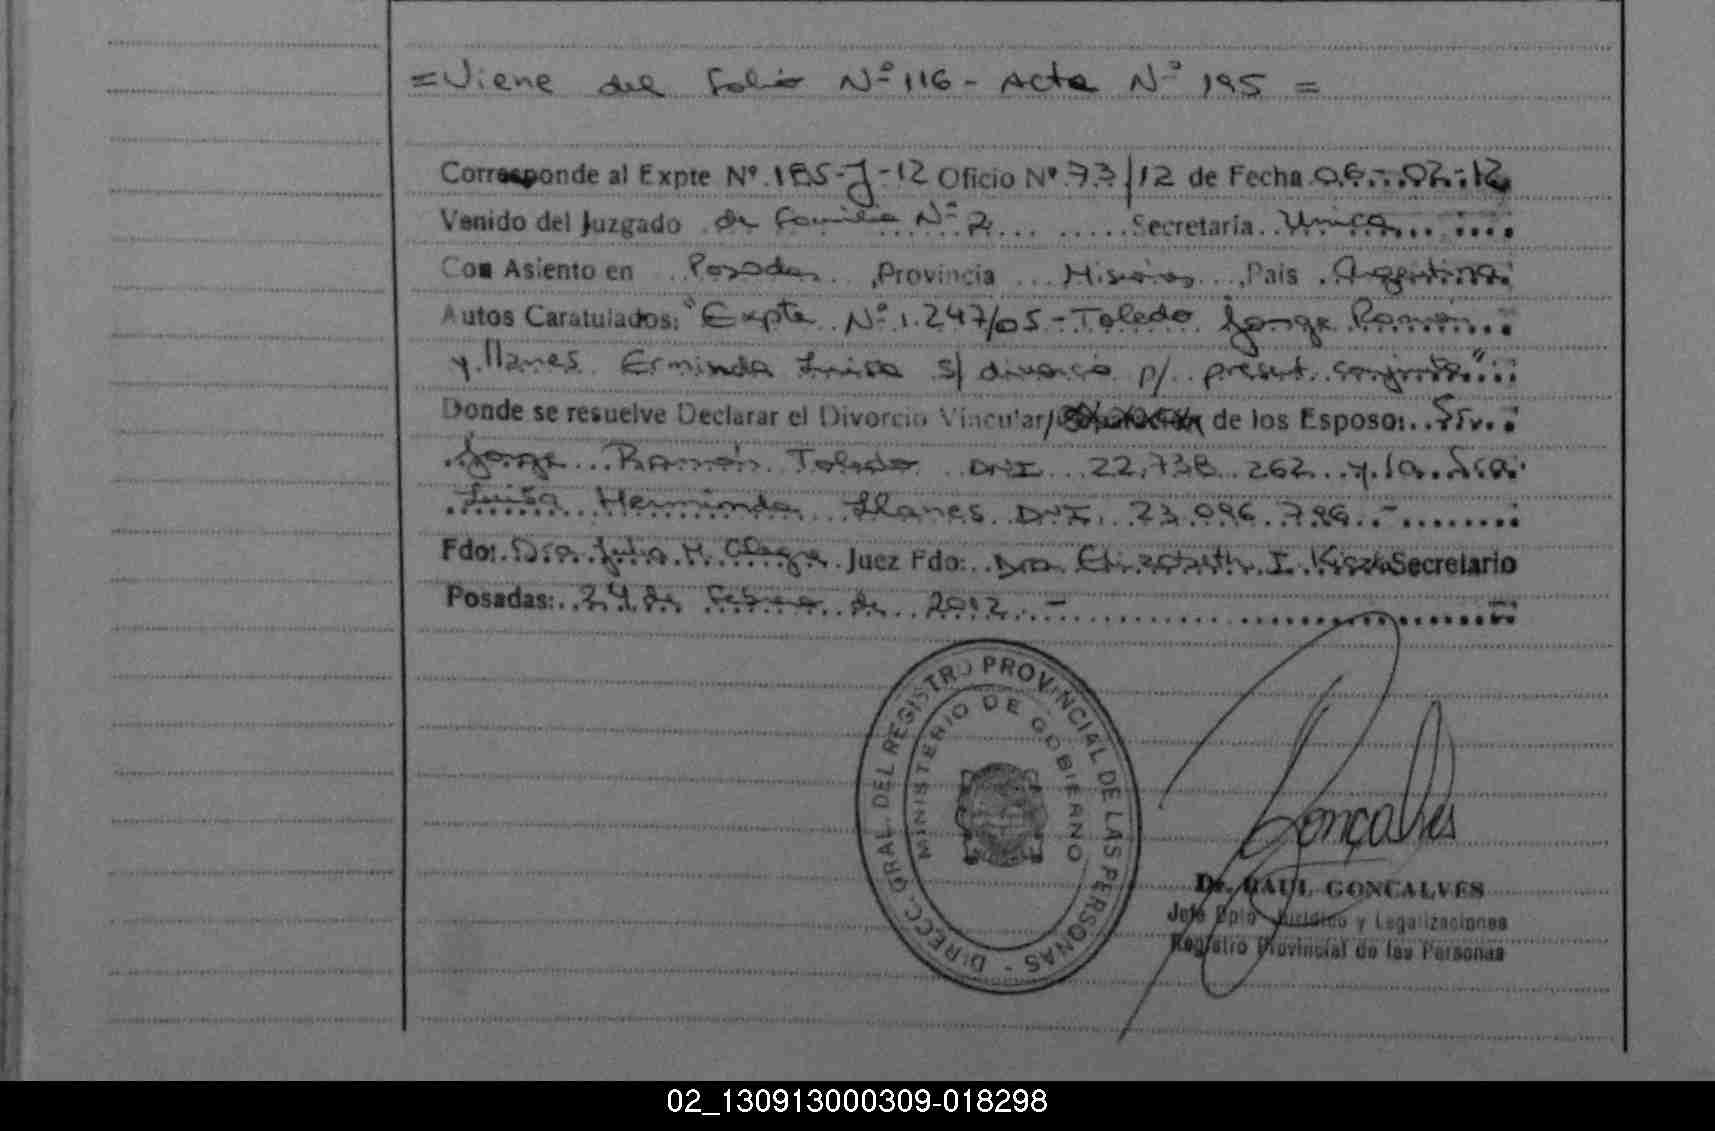 =Viene del folio Nº 116 - Acta Nº 195 =
Corresponde al Expte Nº 185-J-12 Oficio Nº 73/12 de Fecha 06-02-12
Venido del Juzgado de Familia Nº 2 Secretaría Unica
Con Asiento en Posadas, Provincia Misiones, País Argentina
Autos Caratulados: "Expte Nº 1.247/05 - Toledo Jorge Ramón
y Llanes Erminda Luisa s/ divorcio p/ present. conjunta"
Donde se resuelve Declarar el Divorcio Vincular/ de los Esposo: Srv.
Jorge Ramón Toledo DNI 22.738.262 y la Sra.
Luisa Herminda Llanes DNI. 23.096.796.-
Fdo: Dra. Julia H. Alegre Juez Fdo: Dra. Elizabeth I. Secretario
Posadas: 24 de Febrero de 2012.-
DIRECC. GRAL. DEL REGISTRO PROVINCIAL DE LAS PERSONAS -
MINISTERIO DE GOBIERNO
Gonçalves
Dr. RAUL GONCALVES
Jefe Dpto Jurídico y Legalizaciones
Registro Provincial de las Personas
02_130913000309-018298